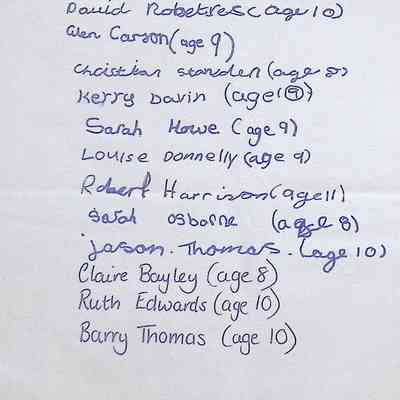 David Robetres (age 10)
Glen Carson (age 9)
Christian standen (age 8)
Kerry Davin (age 9)
Sarah Howe (age 9)
Louise Donnelly (age 9)
Robert Harrison (age 11)
Sarah osborne (age 8)
jason. Thomas. (age 10)
Claire Bayley (age 8)
Ruth Edwards (age 10)
Barry Thomas (age 10)